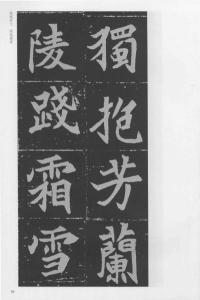 獨抱芳蘭
陵踐霜雪